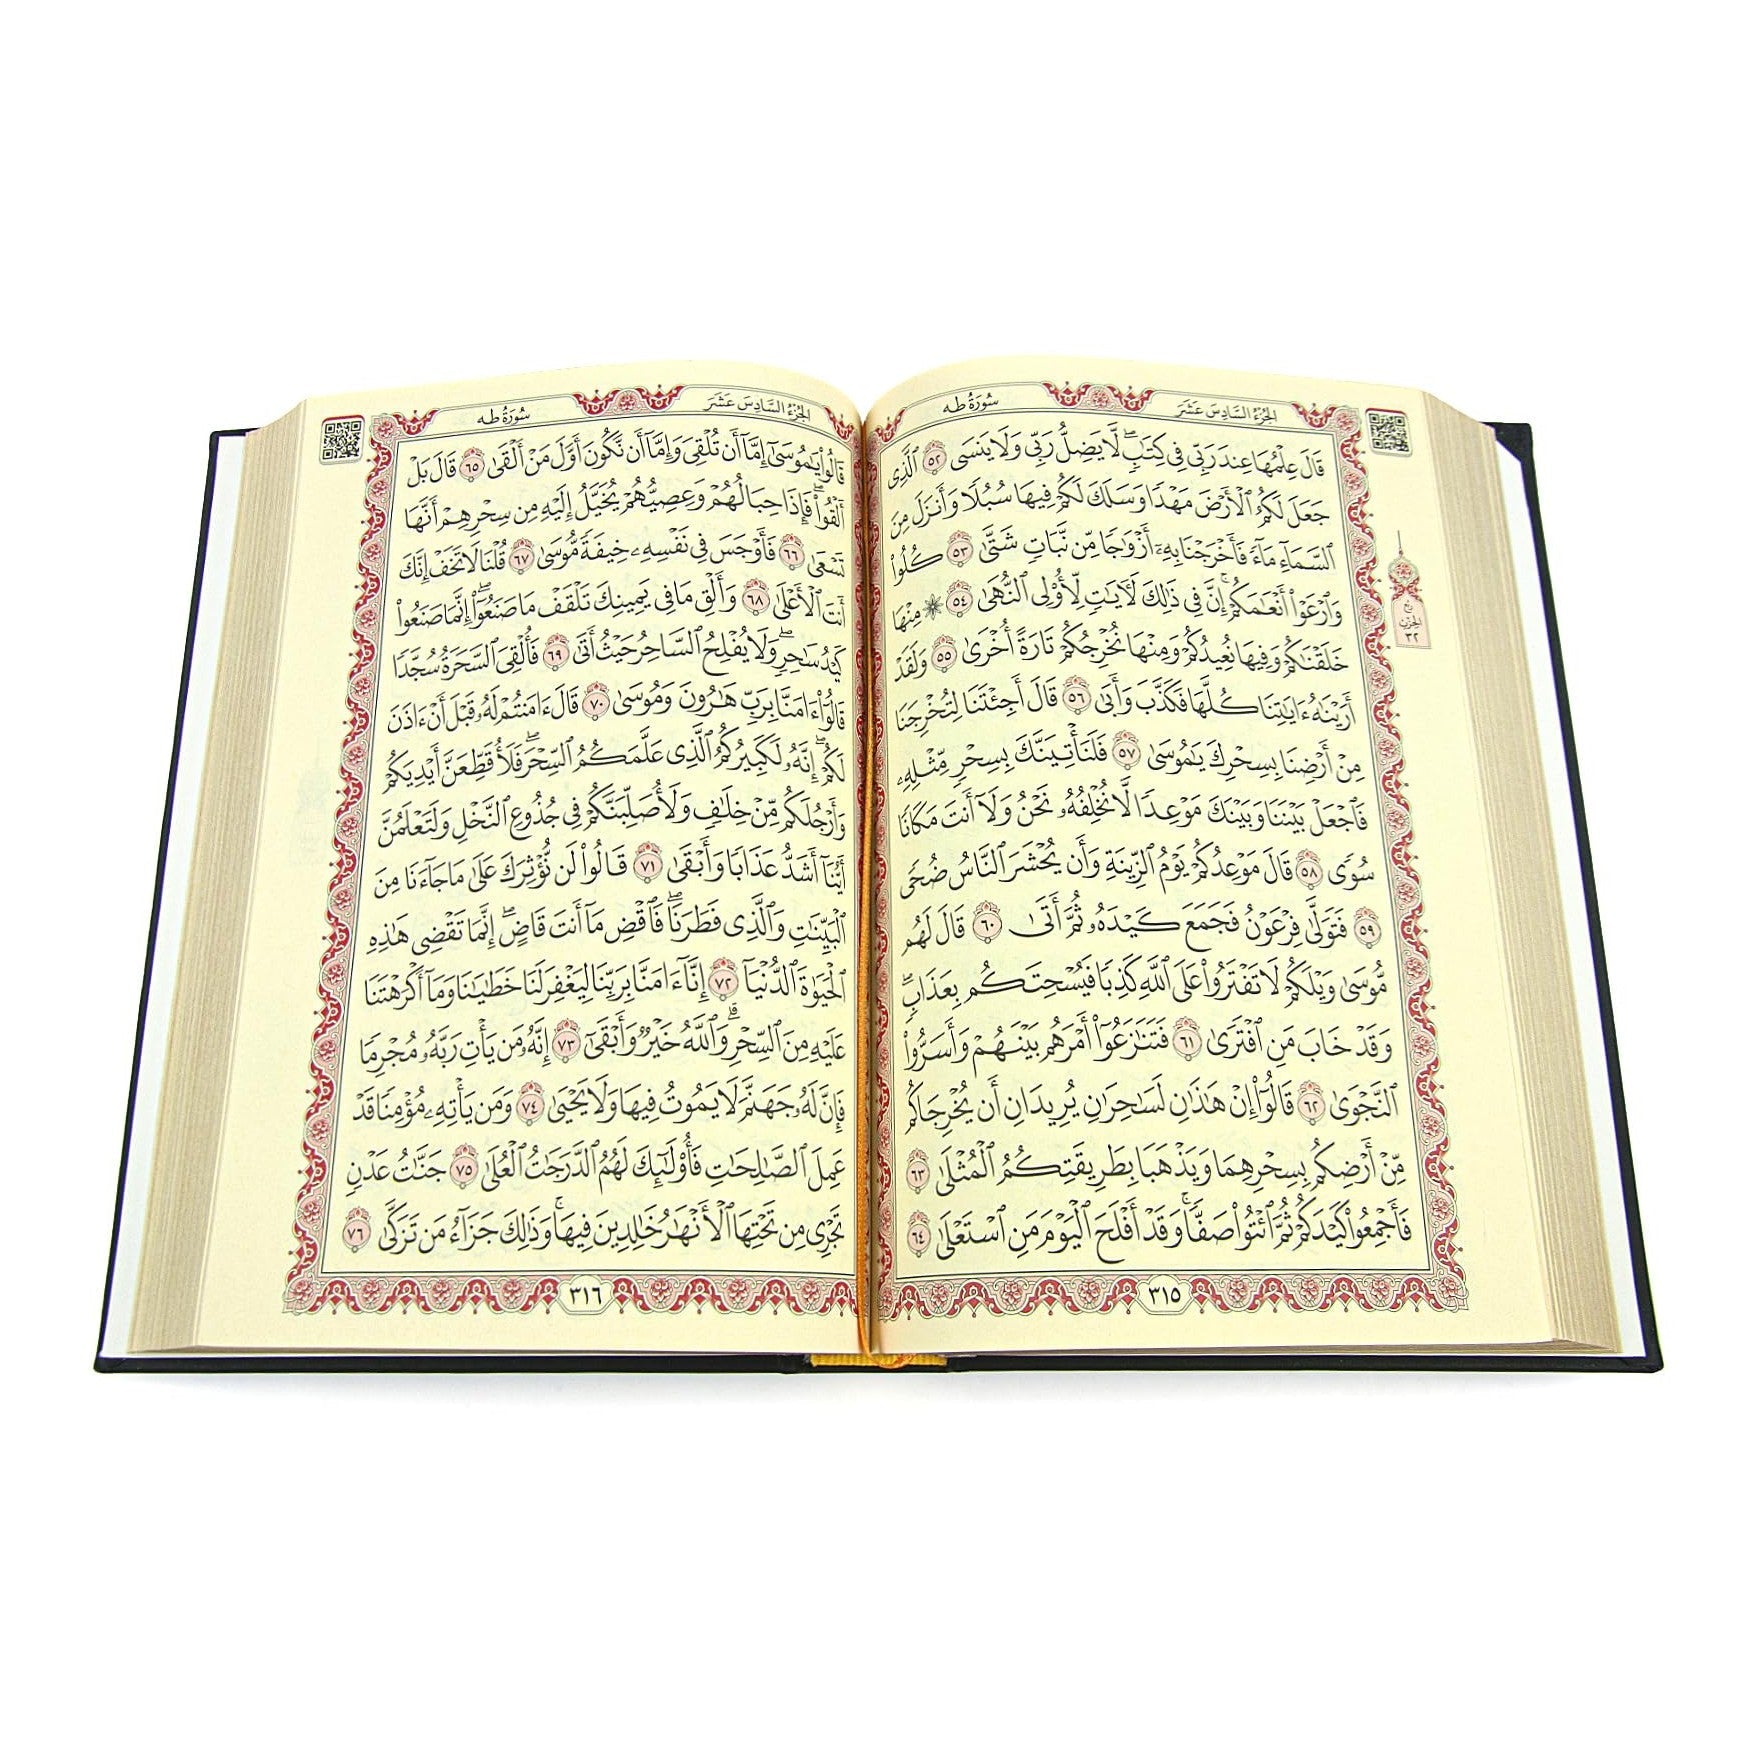 الجزء السادس عشر
سورة طه
قَالَ عِلْمُهَا عِندَ رَبِّى فِى كِتَٰبٍۖ لَّا يَضِلُّ رَبِّى وَلَا يَنسَى ٥٢ ٱلَّذِى
جَعَلَ لَكُمُ ٱلْأَرْضَ مَهْدًا وَسَلَكَ لَكُمْ فِيهَا سُبُلًا وَأَنزَلَ مِنَ
ٱلسَّمَآءِ مَآءً فَأَخْرَجْنَا بِهِۦٓ أَزْوَٰجًا مِّن نَّبَاتٍ شَتَّىٰ ٥٣ كُلُوا۟
وَٱرْعَوْا۟ أَنْعَٰمَكُمْۚ إِنَّ فِى ذَٰلِكَ لَءَايَٰتٍ لِّأُو۟لِى ٱلنُّهَىٰ ٥٤ ۞ مِنْهَا
خَلَقْنَٰكُمْ وَفِيهَا نُعِيدُكُمْ وَمِنْهَا نُخْرِجُكُمْ تَارَةً أُخْرَىٰ ٥٥ وَلَقَدْ
أَرَيْنَٰهُ ءَايَٰتِنَا كُلَّهَا فَكَذَّبَ وَأَبَىٰ ٥٦ قَالَ أَجِئْتَنَا لِتُخْرِجَنَا
مِنْ أَرْضِنَا بِسِحْرِكَ يَٰمُوسَىٰ ٥٧ فَلَنَأْتِيَنَّكَ بِسِحْرٍ مِّثْلِهِۦ
فَٱجْعَلْ بَيْنَنَا وَبَيْنَكَ مَوْعِدًا لَّا نُخْلِفُهُۥ نَحْنُ وَلَآ أَنتَ مَكَانًا
سُوًى ٥٨ قَالَ مَوْعِدُكُمْ يَوْمُ ٱلزِّينَةِ وَأَن يُحْشَرَ ٱلنَّاسُ ضُحًى
٥٩ فَتَوَلَّىٰ فِرْعَوْنُ فَجَمَعَ كَيْدَهُۥ ثُمَّ أَتَىٰ ٦٠ قَالَ لَهُم
مُّوسَىٰ وَيْلَكُمْ لَا تَفْتَرُوا۟ عَلَى ٱللَّهِ كَذِبًا فَيُسْحِتَكُم بِعَذَابٍۖ
وَقَدْ خَابَ مَنِ ٱفْتَرَىٰ ٦١ فَتَنَٰزَعُوٓا۟ أَمْرَهُم بَيْنَهُمْ وَأَسَرُّوا۟
ٱلنَّجْوَىٰ ٦٢ قَالُوٓا۟ إِنْ هَٰذَٰنِ لَسَٰحِرَٰنِ يُرِيدَانِ أَن يُخْرِجَاكُم
مِّنْ أَرْضِكُم بِسِحْرِهِمَا وَيَذْهَبَا بِطَرِيقَتِكُمُ ٱلْمُثْلَىٰ ٦٣
فَأَجْمِعُوا۟ كَيْدَكُمْ ثُمَّ ٱئْتُوا۟ صَفًّاۚ وَقَدْ أَفْلَحَ ٱلْيَوْمَ مَنِ ٱسْتَعْلَىٰ ٦٤
٣١٥
الحزب
٣٢
الجزء السادس عشر
سورة طه
قَالُوا۟ يَٰمُوسَىٰٓ إِمَّآ أَن تُلْقِىَ وَإِمَّآ أَن نَّكُونَ أَوَّلَ مَنْ أَلْقَىٰ ٦٥ قَالَ بَلْ
أَلْقُوا۟ۖ فَإِذَا حِبَالُهُمْ وَعِصِيُّهُمْ يُخَيَّلُ إِلَيْهِ مِن سِحْرِهِمْ أَنَّهَا
تَسْعَىٰ ٦٦ فَأَوْجَسَ فِى نَفْسِهِۦ خِيفَةً مُّوسَىٰ ٦٧ قُلْنَا لَا تَخَفْ إِنَّكَ
أَنتَ ٱلْأَعْلَىٰ ٦٨ وَأَلْقِ مَا فِى يَمِينِكَ تَلْقَفْ مَا صَنَعُوٓا۟ۖ إِنَّمَا صَنَعُوا۟
كَيْدُ سَٰحِرٍۖ وَلَا يُفْلِحُ ٱلسَّاحِرُ حَيْثُ أَتَىٰ ٦٩ فَأُلْقِىَ ٱلسَّحَرَةُ سُجَّدًا
قَالُوٓا۟ ءَامَنَّا بِرَبِّ هَٰرُونَ وَمُوسَىٰ ٧٠ قَالَ ءَامَنتُمْ لَهُۥ قَبْلَ أَنْ ءَاذَنَ
لَكُمْۖ إِنَّهُۥ لَكَبِيرُكُمُ ٱلَّذِى عَلَّمَكُمُ ٱلسِّحْرَۖ فَلَأُقَطِّعَنَّ أَيْدِيَكُمْ
وَأَرْجُلَكُم مِّنْ خِلَٰفٍ وَلَأُصَلِّبَنَّكُمْ فِى جُذُوعِ ٱلنَّخْلِ وَلَتَعْلَمُنَّ
أَيُّنَآ أَشَدُّ عَذَابًا وَأَبْقَىٰ ٧١ قَالُوا۟ لَن نُّؤْثِرَكَ عَلَىٰ مَا جَآءَنَا مِنَ
ٱلْبَيِّنَٰتِ وَٱلَّذِى فَطَرَنَاۖ فَٱقْضِ مَآ أَنتَ قَاضٍۖ إِنَّمَا تَقْضِى هَٰذِهِ
ٱلْحَيَوٰةَ ٱلدُّنْيَآ ٧٢ إِنَّآ ءَامَنَّا بِرَبِّنَا لِيَغْفِرَ لَنَا خَطَٰيَٰنَا وَمَآ أَكْرَهْتَنَا
عَلَيْهِ مِنَ ٱلسِّحْرِۗ وَٱللَّهُ خَيْرٌ وَأَبْقَىٰٓ ٧٣ إِنَّهُۥ مَن يَأْتِ رَبَّهُۥ مُجْرِمًا
فَإِنَّ لَهُۥ جَهَنَّمَ لَا يَمُوتُ فِيهَا وَلَا يَحْيَىٰ ٧٤ وَمَن يَأْتِهِۦ مُؤْمِنًا قَدْ
عَمِلَ ٱلصَّٰلِحَٰتِ فَأُو۟لَٰٓئِكَ لَهُمُ ٱلدَّرَجَٰتُ ٱلْعُلَىٰ ٧٥ جَنَّٰتُ عَدْنٍ
تَجْرِى مِن تَحْتِهَا ٱلْأَنْهَٰرُ خَٰلِدِينَ فِيهَاۚ وَذَٰلِكَ جَزَآءُ مَن تَزَكَّىٰ ٧٦
٣١٦